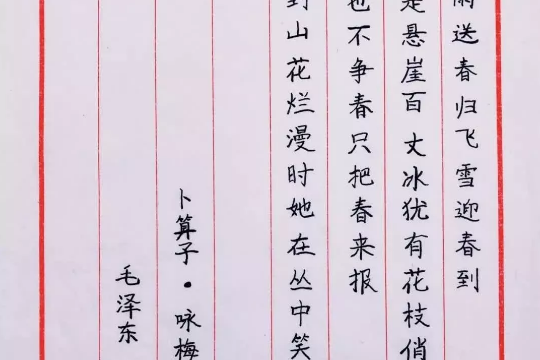 雨送春归飞雪迎春到
是悬崖百丈冰犹有花枝俏
也不争春只把春来报
到山花烂漫时她在丛中笑
卜算子·咏梅
毛泽东